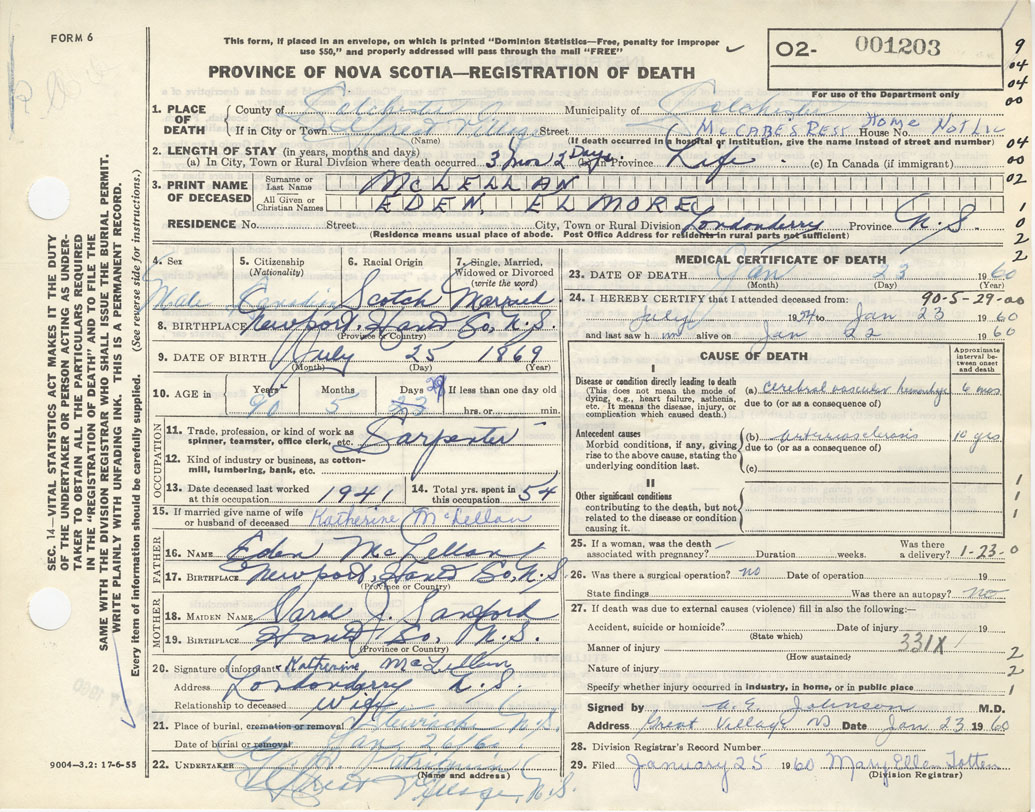 FORM 6
This form, if placed in an envelope, on which is printed "Dominion Statistics—Free, penalty for improper
use $50," and properly addressed will pass through the mail "FREE"
02- 001203
For use of the Department only
PROVINCE OF NOVA SCOTIA—REGISTRATION OF DEATH
9
04
04
00
04
00
02
1
0
2
2
1. PLACE OF DEATH
County of Colchester Municipality of Colchester
If in City or Town Great Village Street McCABE'S Home House No. Not Lic
(Name) (If death occurred in a hospital or institution, give the name instead of street and number)
2. LENGTH OF STAY (in years, months and days)
(a) In City, Town or Rural Division where death occurred 3 mon 2 Days. (b) In Province Life (c) In Canada (if immigrant)
3. PRINT NAME OF DECEASED
Surname or Last Name McLELLAN
All Given or Christian Names EDEN ELMORE
RESIDENCE No. Street City, Town or Rural Division Londonderry Province N.S.
(Residence means usual place of abode. Post Office Address for residents in rural parts not sufficient)
4. Sex Male
5. Citizenship (Nationality) Canadian
6. Racial Origin Scotch
7. Single, Married, Widowed or Divorced (write the word) Married
8. BIRTHPLACE Newport, Hants Co, N.S.
(Province or Country)
9. DATE OF BIRTH July 25 1869
(Month) (Day) (Year)
10. AGE in Years 90 Months 5 Days 29 If less than one day old
hrs. or min.
OCCUPATION
11. Trade, profession, or kind of work as spinner, teamster, office clerk, etc. Carpenter
12. Kind of industry or business, as cotton-mill, lumbering, bank, etc.
13. Date deceased last worked at this occupation 1941
14. Total yrs. spent in this occupation 54
15. If married give name of wife or husband of deceased Katherine McLellan
FATHER
16. NAME Eden McLellan
17. BIRTHPLACE Newport, Hants Co, N.S.
(Province or Country)
MOTHER
18. MAIDEN NAME Sarah J. Sanford
19. BIRTHPLACE Hants Co, N.S.
(Province or Country)
20. Signature of informant Katherine McLellan
Address Londonderry N.S.
Relationship to deceased Wife
21. Place of burial, cremation or removal N.S.
Date of burial or removal Jan 26/60
22. UNDERTAKER
(Name and address)
Great Village, N.S.
MEDICAL CERTIFICATE OF DEATH
23. DATE OF DEATH Jan 23 1960
(Month) (Day) (Year)
24. I HEREBY CERTIFY that I attended deceased from: 90-5-29-00
July 19 to Jan 23 1960
and last saw h m alive on Jan 22 1960
CAUSE OF DEATH
Approximate interval between onset and death
I
Disease or condition directly leading to death
(This does not mean the mode of dying, e.g., heart failure, asthenia, etc. It means the disease, injury, or complication which caused death.)
(a) Cerebral vascular hemorrhage 6 mos
due to (or as a consequence of)
Antecedent causes
Morbid conditions, if any, giving rise to the above cause, stating the underlying condition last.
(b) arteriosclerosis 10 yrs
due to (or as a consequence of)
(c)
II
Other significant conditions
contributing to the death, but not related to the disease or condition causing it.
1
1
1
25. If a woman, was the death associated with pregnancy? Duration weeks. Was there a delivery? 1-23-0
26. Was there a surgical operation? no Date of operation 19
State findings Was there an autopsy? no
27. If death was due to external causes (violence) fill in also the following:—
Accident, suicide or homicide? Date of injury 19
(State which)
Manner of injury 331X 2
(How sustained)
Nature of injury 2
Specify whether injury occurred in industry, in home, or in public place 1
Signed by A. E. Johnson M.D.
Address Great Village NS Date Jan 23 1960
28. Division Registrar's Record Number
29. Filed January 25 1960 Mary Ellen Totten
(Division Registrar)
SEC. 14—VITAL STATISTICS ACT MAKES IT THE DUTY
OF THE UNDERTAKER OR PERSON ACTING AS UNDER-
TAKER TO OBTAIN ALL THE PARTICULARS REQUIRED
IN THE "REGISTRATION OF DEATH" AND TO FILE THE
SAME WITH THE DIVISION REGISTRAR WHO SHALL ISSUE THE BURIAL PERMIT.
WRITE PLAINLY WITH UNFADING INK. THIS IS A PERMANENT RECORD.
Every item of information should be carefully supplied. (See reverse side for instructions.)
9004—3.2: 17-6-55